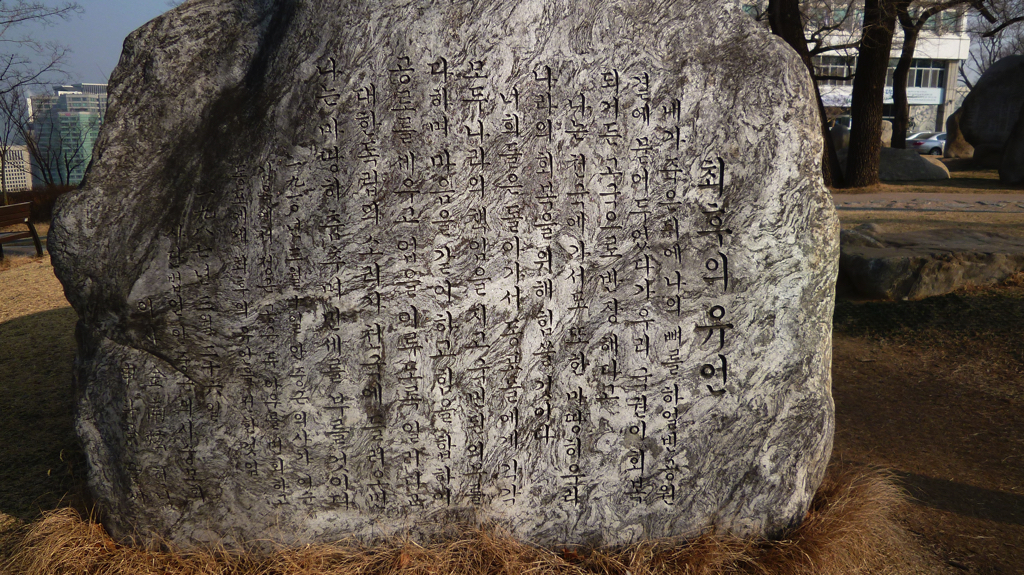 최후의 유언
내가 죽은 뒤에 나의 뼈를 하얼빈 공원
곁에 묻어 두었다가 우리 국권이 회복
되거든 고국으로 반장해 다고
나는 천국에 가서도 또한 마땅히 우리
나라의 회복을 위해 힘쓸 것이다
너희들은 돌아가서 동포들에게 각각
모두 나라의 책임을 지고 국민된 의무를
다하며 마음을 같이하고 힘을 합하여
공로를 세우고 업을 이루도록 일러다고
대한독립의 소리가 천국에 들려오면
나는 마땅히 춤추며 만세를 부를 것이다
안중근 의사가 여순
동포에게